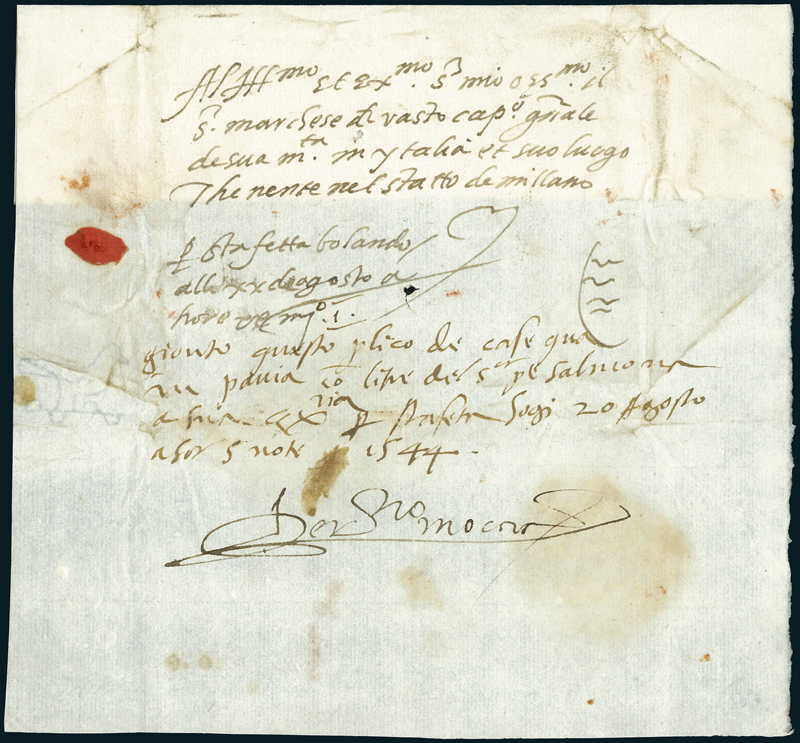 Al Ill.mo et Ex.mo S.r mio oss.mo il
S.r marchese dl vasto cap.o gnale
de sua m.ta in ytalia et suo luogo
Thenente nel statto de millano
p staffetta bolando
alli xx de agosto a
hore
gionto questo plico de case qua
in pavia co litre del s.r pe salmona
a sua p stafeta hogi 20 Agosto
a hor 5 note 1544.